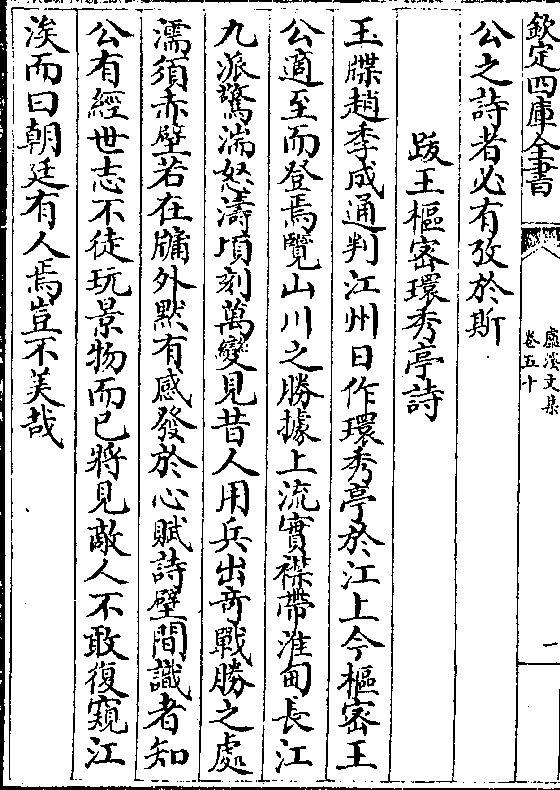 欽定四庫全書
盧溪文集
卷五十
一
公之詩者必有攷於斯
跋王樞密環秀亭詩
玉牒趙季成通判江州日作環秀亭於江上今樞密王
公適至而登焉覽山川之勝據上流實襟帶淮甸長江
九派驚湍怒濤頃刻萬變見昔人用兵出竒戰勝之處
濡須赤壁若在牖外黙有感發於心賦詩壁間識者知
公有經世志不徒玩景物而已將見敵人不敢復窺江
涘而曰朝廷有人焉豈不美哉